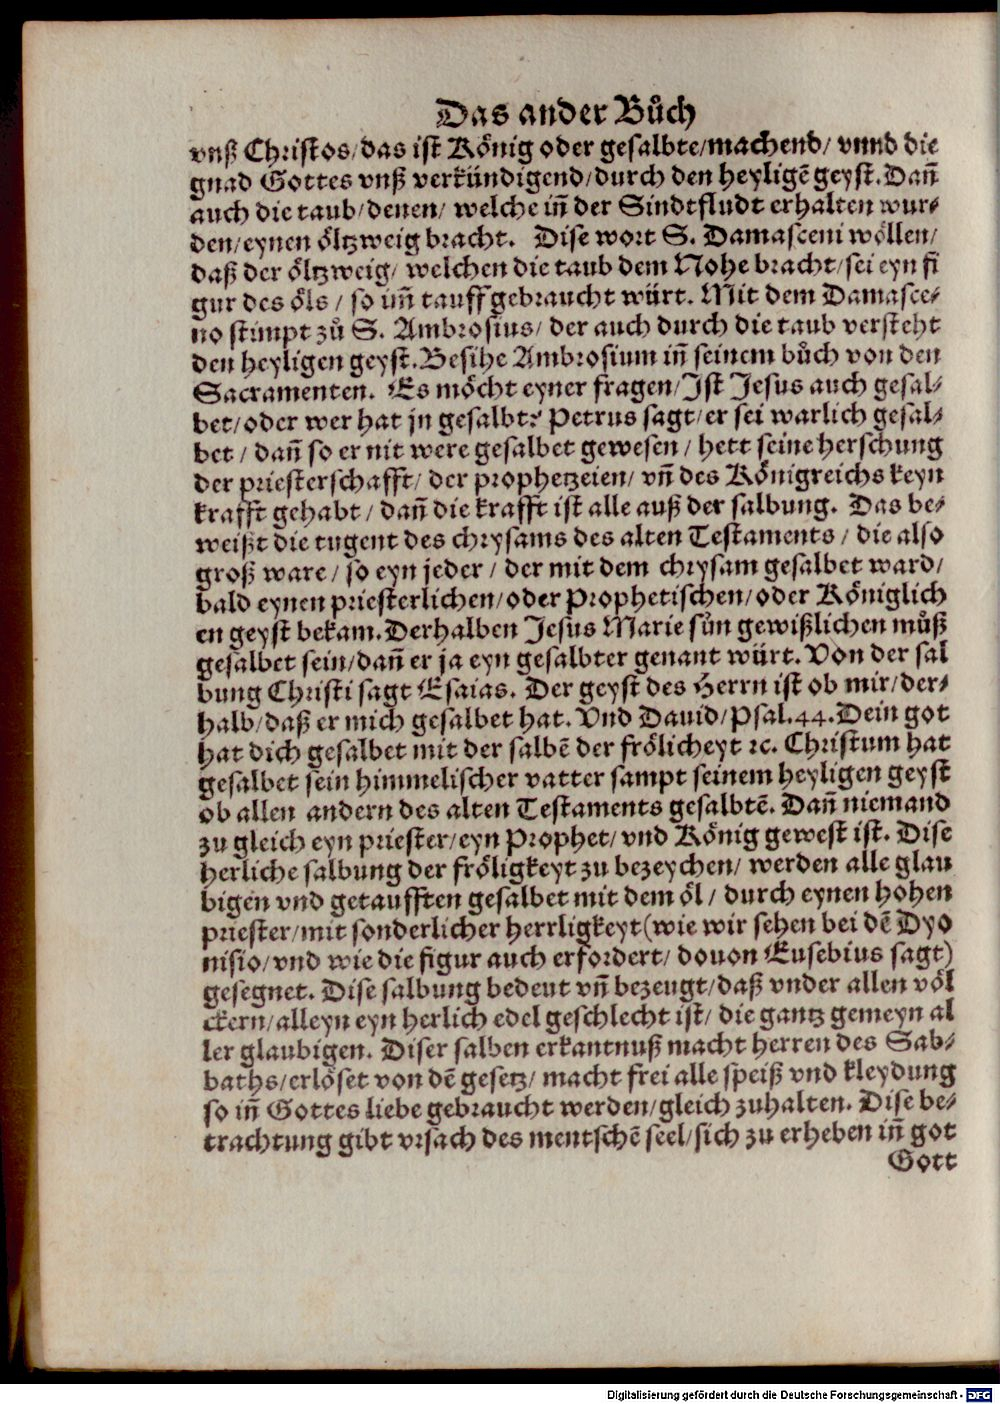 Das ander Bůch
vnß Christos/das ist König oder gesalbte/machend/ vnnd die
gnad Gottes vnß verkündigend/durch den heyligẽ geyst. Dañ
auch die taub/denen/ welche iñ der Sindtfludt erhalten wur-
den/eynen öltzweig bracht. Dise wort S. Damasceni wöllen/
daß der öltzweig/ welchen die taub dem Nohe bracht/sei eyn fi
gur des öls / so im̃ tauff gebraucht würt. Mit dem Damasce-
no stimpt zů S. Ambrosius/ der auch durch die taub versteht
den heyligen geyst. Besihe Ambrosium iñ seinem bůch von den
Sacramenten. Es möcht eyner fragen/Ist Jesus auch gesal-
bet/oder wer hat jn gesalbt? Petrus sagt/er sei warlich gesal-
bet / dañ so er nit were gesalbet gewesen / hett seine herschung
der priesterschafft/ der prophetzeien/ vñ des Königreichs keyn
krafft gehabt / dañ die krafft ist alle auß der salbung. Das be-
weißt die tugent des chrysams des alten Testaments / die also
groß ware / so eyn jeder / der mit dem chrysam gesalbet ward/
bald eynen priesterlichen/oder Prophetischen/oder Königlich
en geyst bekam. Derhalben Jesus Marie sůn gewißlichen můß
gesalbet sein/dañ er ja eyn gesalbter genant würt. Von der sal
bung Christi sagt Esaias. Der geyst des Herrn ist ob mir/der-
halb/daß er mich gesalbet hat. Vnd Dauid/Psal.44. Dein got
hat dich gesalbet mit der salbẽ der frölicheyt ꝛc. Christum hat
gesalbet sein himmelischer vatter sampt seinem heyligen geyst
ob allen andern des alten Testaments gesalbtẽ. Dañ niemand
zu gleich eyn priester/eyn Prophet/ vnd König gewest ist. Dise
herliche salbung der fröligkeyt zu bezeychen/ werden alle glau
bigen vnd getaufften gesalbet mit dem öl / durch eynen hohen
priester/mit sonderlicher herrligkeyt(wie wir sehen bei dẽ Dyo
nisio/vnd wie die figur auch erfordert/ douon Eusebius sagt)
gesegnet. Dise salbung bedeut vñ bezeugt/daß vnder allen völ
ckern/alleyn eyn herlich edel geschlecht ist/ die gantz gemeyn al
ler glaubigen. Diser salben erkantnuß macht herren des Sab-
baths/erlöset von dẽ gesetz/ macht frei alle speiß vnd kleydung
so iñ Gottes liebe gebraucht werden/gleich zuhalten. Dise be-
trachtung gibt vrsach des mentschẽ seel/sich zu erheben iñ got
Gott
Digitalisierung gefördert durch die Deutsche Forschungsgemeinschaft - DFG